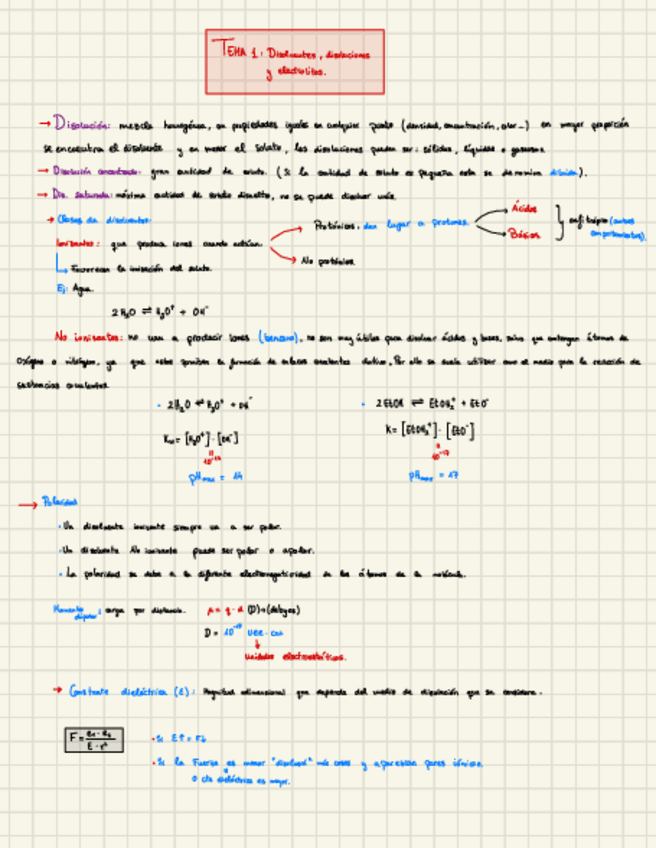 TEMA 1: Disolventes, disoluciones
y electrolitos.
→ Disolución: mezcla homogénea, con propiedades iguales en cualquier punto (densidad, concentración, olor...) en mayor proporción
se encuentra el disolvente y en menor el soluto, las disoluciones pueden ser: sólidas, líquidas o gaseosas.
→ Disolución concentrada: gran cantidad de soluto. (Si la cantidad de soluto es pequeña esta se denomina diluida).
→ Dis. saturada: máxima cantidad de soluto disuelto, no se puede disolver más.
→ Clases de disolventes:
Ionizantes: que produce iones cuando actúan.
Favorecen la ionización del soluto.
Ej: Agua.
Protónicos. dan lugar a protones
Ácidos
Básicos
anfitrópico (ambos
comportamientos).
No protónico
2H₂O ⇌ H₃O⁺ + OH⁻
No ionizantes: no van a producir iones (benceno), no son muy útiles para disolver ácidos y bases, salvo que contengan átomos de
oxígeno o nitrógeno, ya que estos permiten la formación de enlaces covalentes dativo. Por ello se suele utilizar como el medio para la reacción de
sustancias covalentes
· 2H₂O ⇌ H₃O⁺ + OH⁻
Kw = [H₃O⁺]·[OH⁻]
10⁻¹⁴
pHmax = 14
· 2EtOH ⇌ EtOH₂⁺ + EtO⁻
K = [EtOH₂⁺]·[EtO⁻]
10⁻¹⁷
pHmax = 17
→ Polaridad
· Un disolvente ionizante siempre va a ser polar.
· Un disolvente No ionizante puede ser polar o apolar.
· La polaridad se debe a la diferente electronegatividad de los átomos de la molécula.
Momento dipolar: carga por distancia. μ = q · d (D)→(debyes)
D = 10⁻¹⁸ uee · cm
unidades electroestáticas.
→ Constante dieléctrica (ε): Magnitud adimensional que depende del medio de disolución que se considere.
F = q₁ · q₂ / ε · r²
· Si ε↑ = F↓
· Si la Fuerza es menor "disolverá" más cosas y aparecerán pares iónicos.
o cte dieléctrica es mayor.